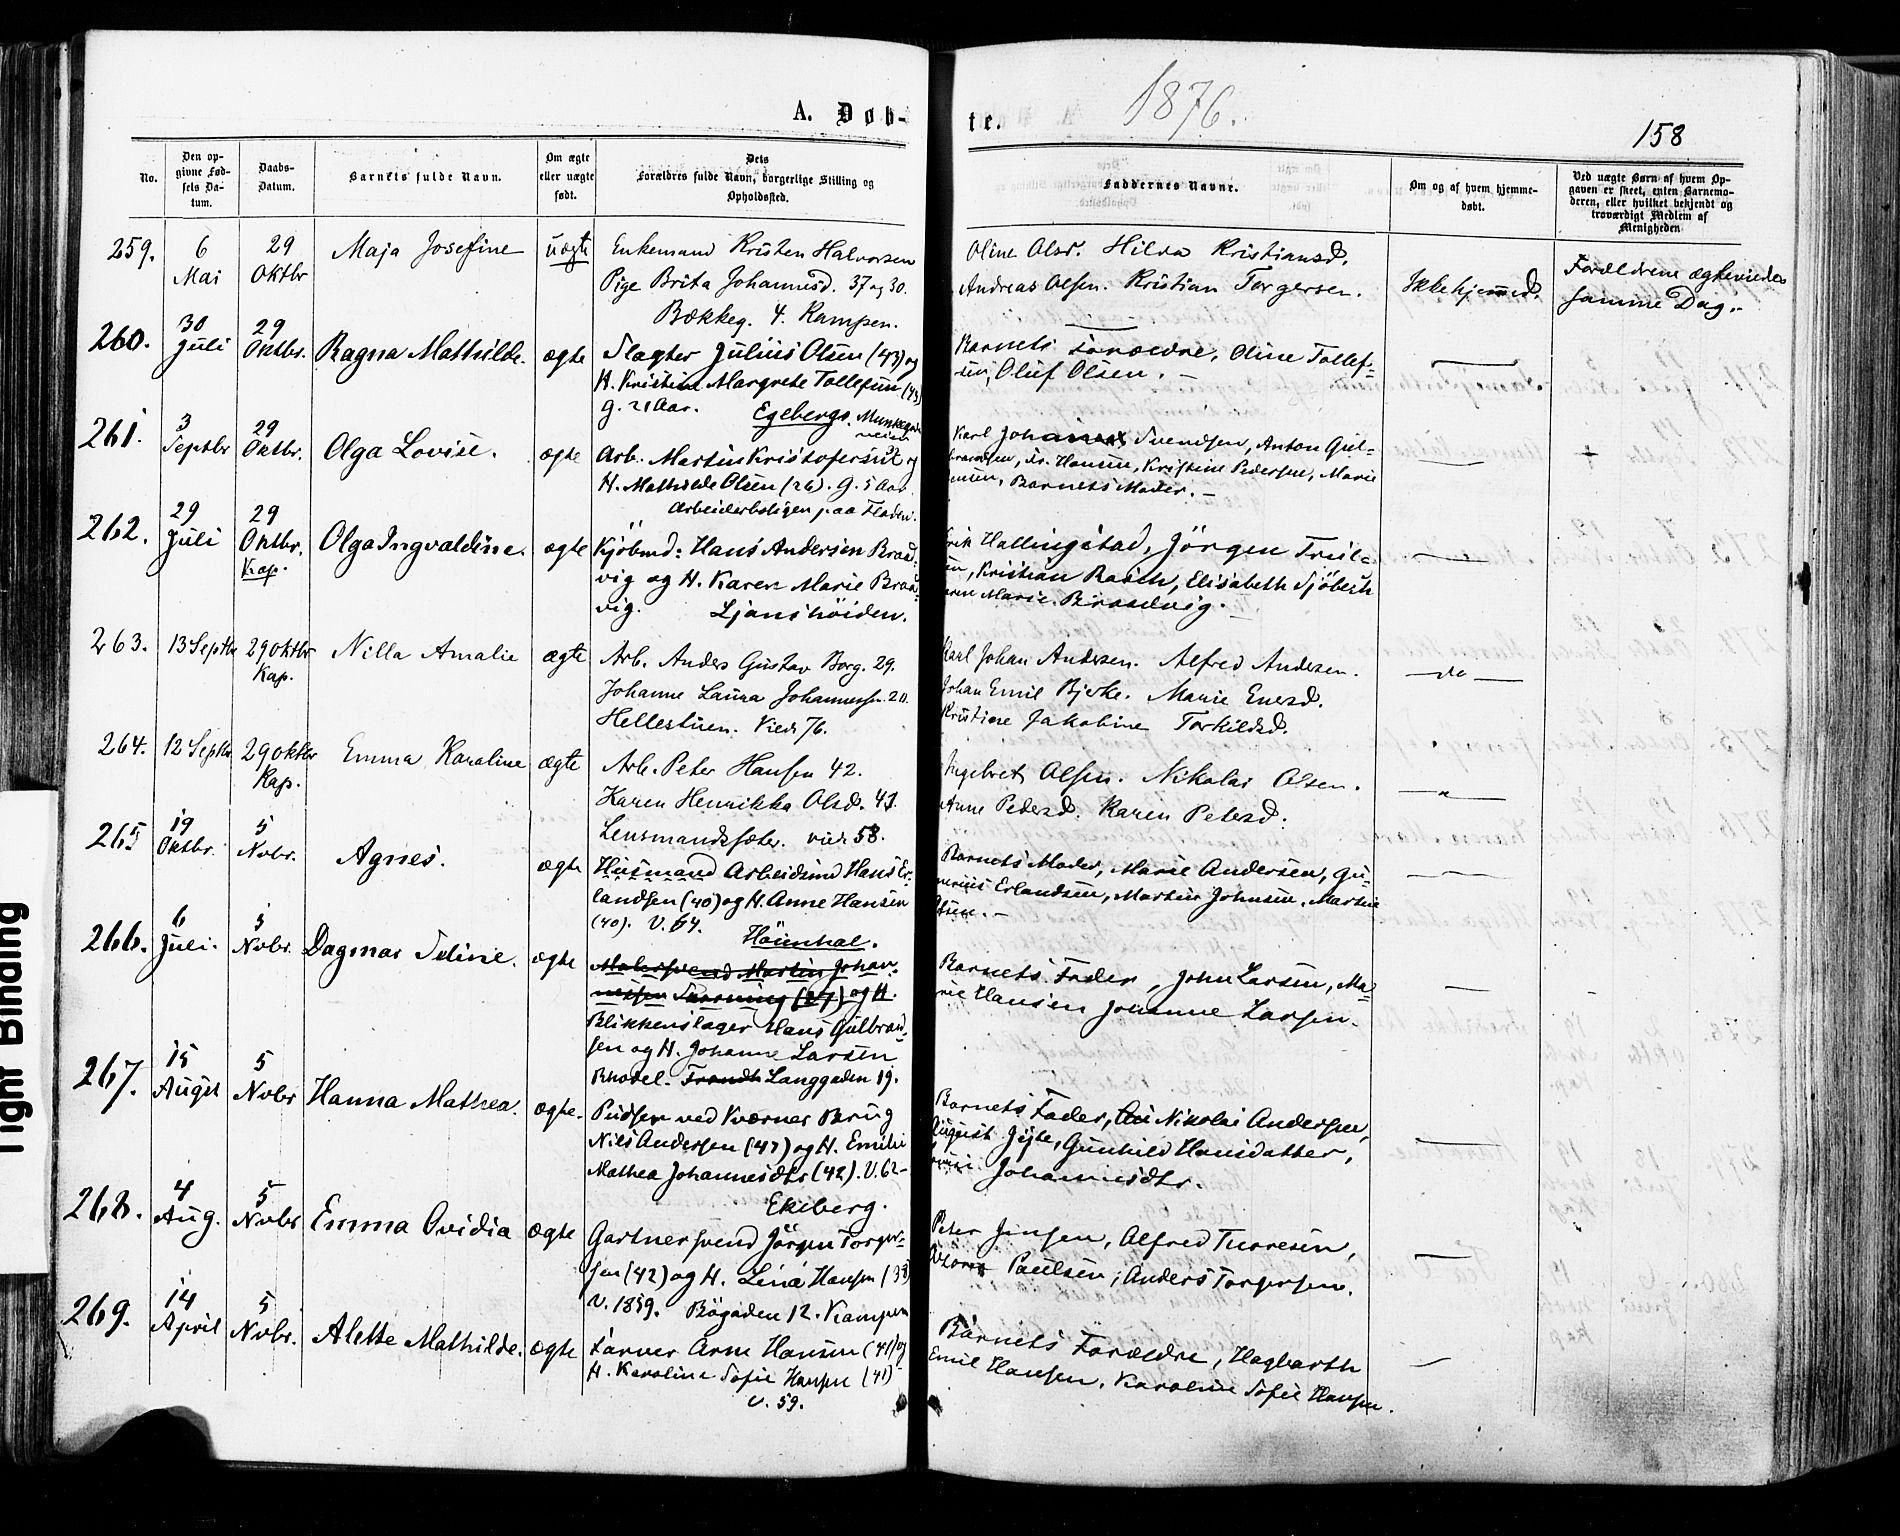 A. Døb-
te.
1876.
158
No.
Den op-
givne Fød-
sels Da-
tum.
Daabs-
Datum.
Barnets fulde Navn.
Om ægte
eller uægte
født.
Dets
Forældres fulde Navn, borgerlige Stilling og
Opholdssted.
Faddernes Navne.
Om og af hvem hjemme-
døbt.
Ved uægte Børn af hvem Op-
gaven er skeet, enten Barnemo-
deren, eller hvilket bekjendt og
troværdigt Medlem af
Menigheden
259.
6
Mai
29
Oktbr
Maja Josefine
uægte
Enkemand Kristen Halvorsen
Pige Brita Johannesd. 37 og 30.
Bækkeg. 4. Kampen.
Oline Olsd. Hilda Kristiansd.
Andreas Olsen. Kristian Torgersen.
Ikke hjemmed.
Forældrene ægteviede
samme Dag.
260.
30
Juli
29
Oktbr.
Ragna Mathilde.
ægte
Slagter Julius Olsen (43) og
H. Kristine Margrete Tollefsen (43)
g. 21 Aar. Egebergs,
Barnets Forældre, Oline Tollef-
sen, Oluf Olsen. —
261.
3
Septbr
29
Oktbr.
Olga Lovise.
ægte
Arb. Martin Kristofersen og
H. Mathilde Olsen (26). G. 5 Aar
Arbeiderboligen paa Fladen.
Karl Svendsen, Anton Gul-
Hansen, Kristine Pedersen, Marie
Barnets Moder. —
262.
29
Juli
29
Oktbr.
Kap.
Olga Ingvaldine.
ægte
Kjøbmd: Hans Andersen Braad-
vig og H. Karen Marie Braa-
vig. Ljanshöiden.
Hallingstad, Jörgen
Kristian Rasch, Elisabeth Sjöbech
Marie Braadvig.
263.
13 Septbr
29 Oktbr
Kap.
Nilla Amalie
ægte
Arb. Anders Gustav Borg. 29.
Johanne Laura Johannessen. 20.
Hellestuen. Viede 76.
Karl Johan Andersen. Alfred Andersen.
Johan Emil Bjerke. Marie Enersd.
Kristine Jakobine Torkildsd.
— do —
264.
12 Septbr
29 Oktbr
Kap.
Emma Karoline
ægte
Arb. Peter Hansen 42.
Karen Henrikka Olsd. 43.
Lensmandssæter. vied 58.
Ingebret Olsen. Nikolai Olsen.
Anne Pedersd. Karen Petersd.
— " —
265
19
Oktbr.
5
Nvbr.
Agnes.
ægte
Husmand Arbeidsmd Hans Er-
landsen (40) og H. Anne Hansen
(40). V. 64.
Höienhal.
Barnets Moder, Marie Andersen, Gu-
Erlandsen, Martin Johnsen, Martin
266.
6
Juli.
5
Nvbr.
Dagmar Seline.
ægte
Malersvend Martin Johan-
nessen (27) og H.
Blikkenslager Hans Gulbrand-
sen og H. Johanne Larsen
Rhodel. Trondh Langgaden 19.
Barnets Fader, John Larsen, Ma-
rie Hansen Johanne Larsen.
267.
15
August
5
Nvbr
Hanna Mathea.
ægte.
Pudser ved Kværner Brug
Nils Andersen (47) og H. Emilie
Mathea Johannesdtr (42). V. 62 —
Ekeberg.
Barnets Fader, Nikolai Andersen,
August Gunhild Hansdatter,
Johannesdtr.
268.
4
Aug.
5
Nvbr
Emma Ovidia
ægte
Gartnersvend Jörgen Torger-
sen (42) og H. Lina Hansen (38)
V. 1859. Bögaden 12. Kampen
Peter Jensen, Alfred Thoresen,
Paulsen, Anders Torgersen.
269.
14
April
5
Nvbr.
Alette Mathilde.
ægte
Farver Arne Hansen (41) og
H. Karoline Sofie Hansen (41)
V. 59.
Barnets Forældre, Hagbarth
Emil Hansen, Karoline Sofie Hansen.
Tight Binding